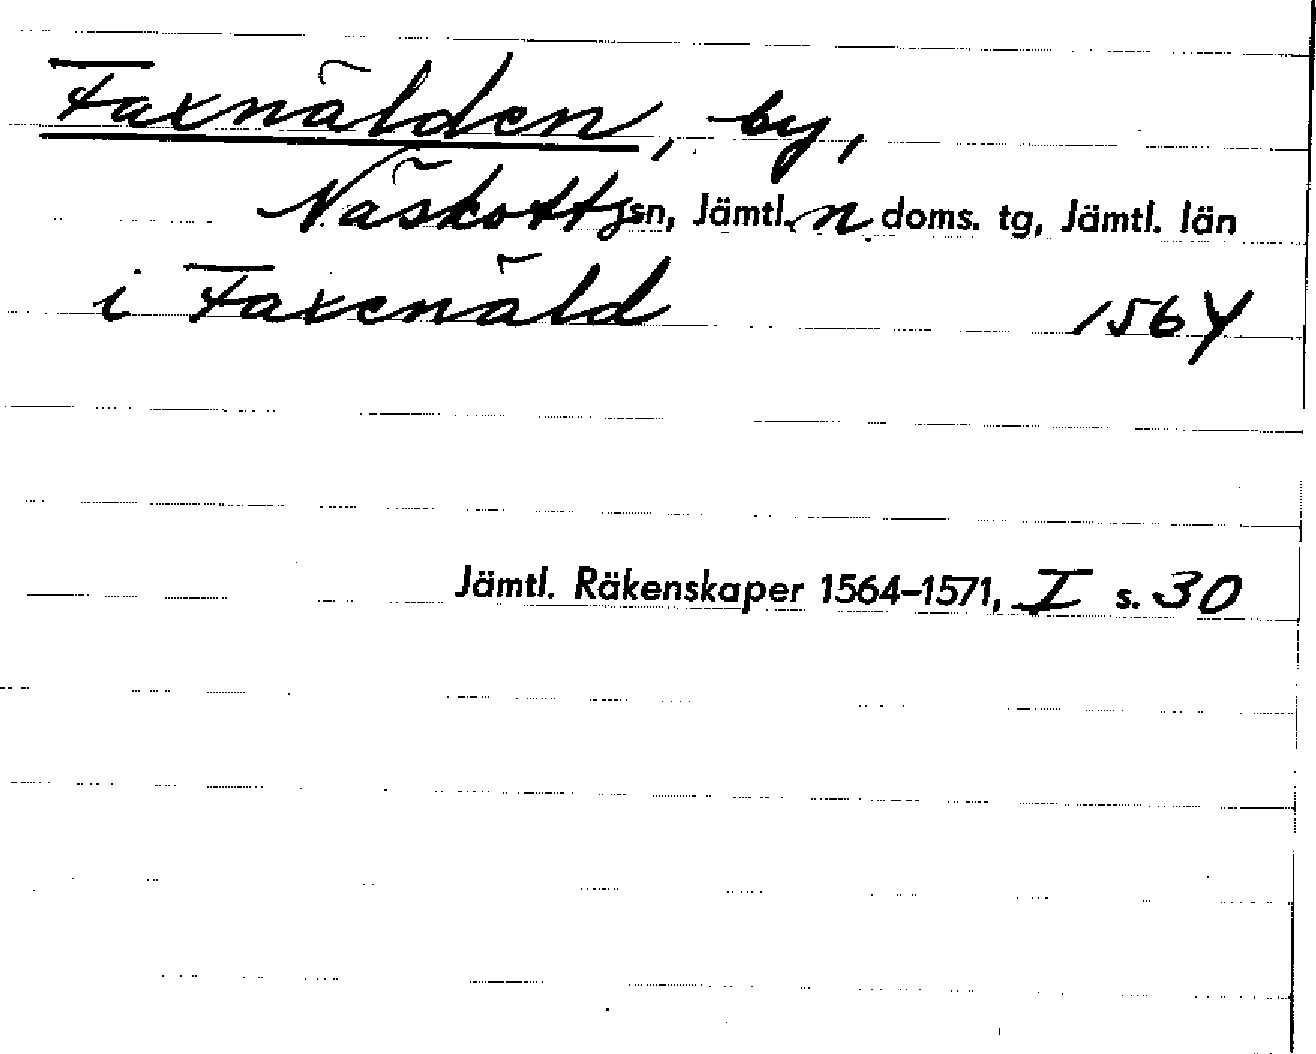 Faxnälden, by,
Näskotts sn, Jämtl. n doms. tg, Jämtl. län
i Faxenäld 1564
Jämtl. Räkenskaper 1564–1571, I s. 30